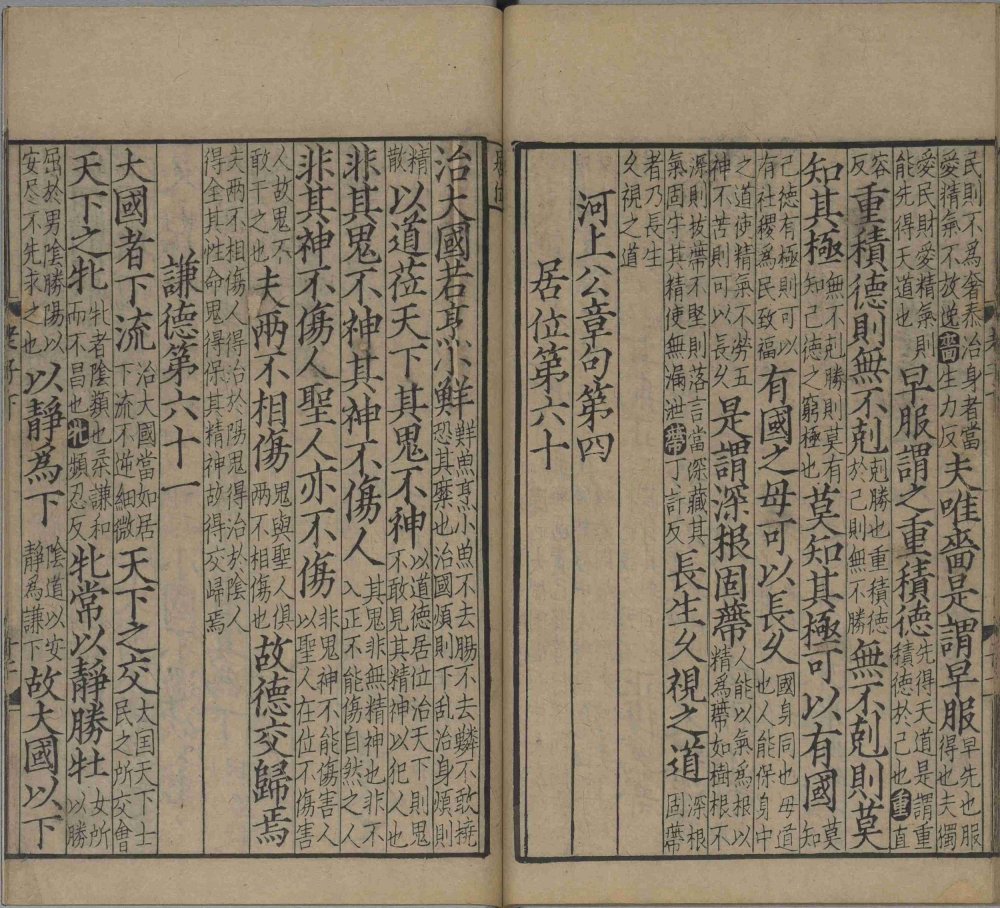 民則不爲奢泰治身者當愛精氣不放逸嗇生力反夫唯嗇是謂早服早先也服得也夫獨
愛民財愛精氣則能先得天道也早服謂之重積德先得天道是謂重積德於己也重直
容反重積德則無不剋剋勝也重積德於己則無不勝無不剋則莫
知其極無不剋勝則莫有知己德之窮極也莫知其極可以有國莫知
己德有極則可以有社稷爲民致福有國之母可以長久國身同也母道也人能保身中
之道使精氣不勞五神不苦則可以長久是謂深根固蔕人能以氣爲根以精爲蔕如樹根不
深則拔蔕不堅則落言當深藏其氣固守其精使無漏泄蔕丁計反長生久視之道深根固蔕
者乃長生久視之道
河上公章句第四
居位第六十
治大國若亨小鮮鮮魚亨小魚不去腸不去鱗不敢撓恐其糜也治國煩則下乱治身煩則
精散以道莅天下其鬼不神以道德居位治天下則鬼不敢見其精神以犯人也
非其鬼不神其神不傷人其鬼非無精神也非不入正不能傷自然之人
非其神不傷人聖人亦不傷非鬼神不能傷害人以聖人在位不傷害
人故鬼不敢干之也夫兩不相傷鬼與聖人俱兩不相傷也故德交歸焉
夫兩不相傷人得治於陽鬼得治於陰人得全其性命鬼得保其精神故得交歸焉
謙德第六十一
大國者下流治大國當如居下流不逆細微天下之交大国天下士民之所交會
天下之牝牝者陰類也柔謙和而不昌也牝頻忍反牝常以靜勝牡女所以勝
屈於男陰勝陽以安尽不先求之也以靜爲下陰道以安靜爲謙下故大國以下